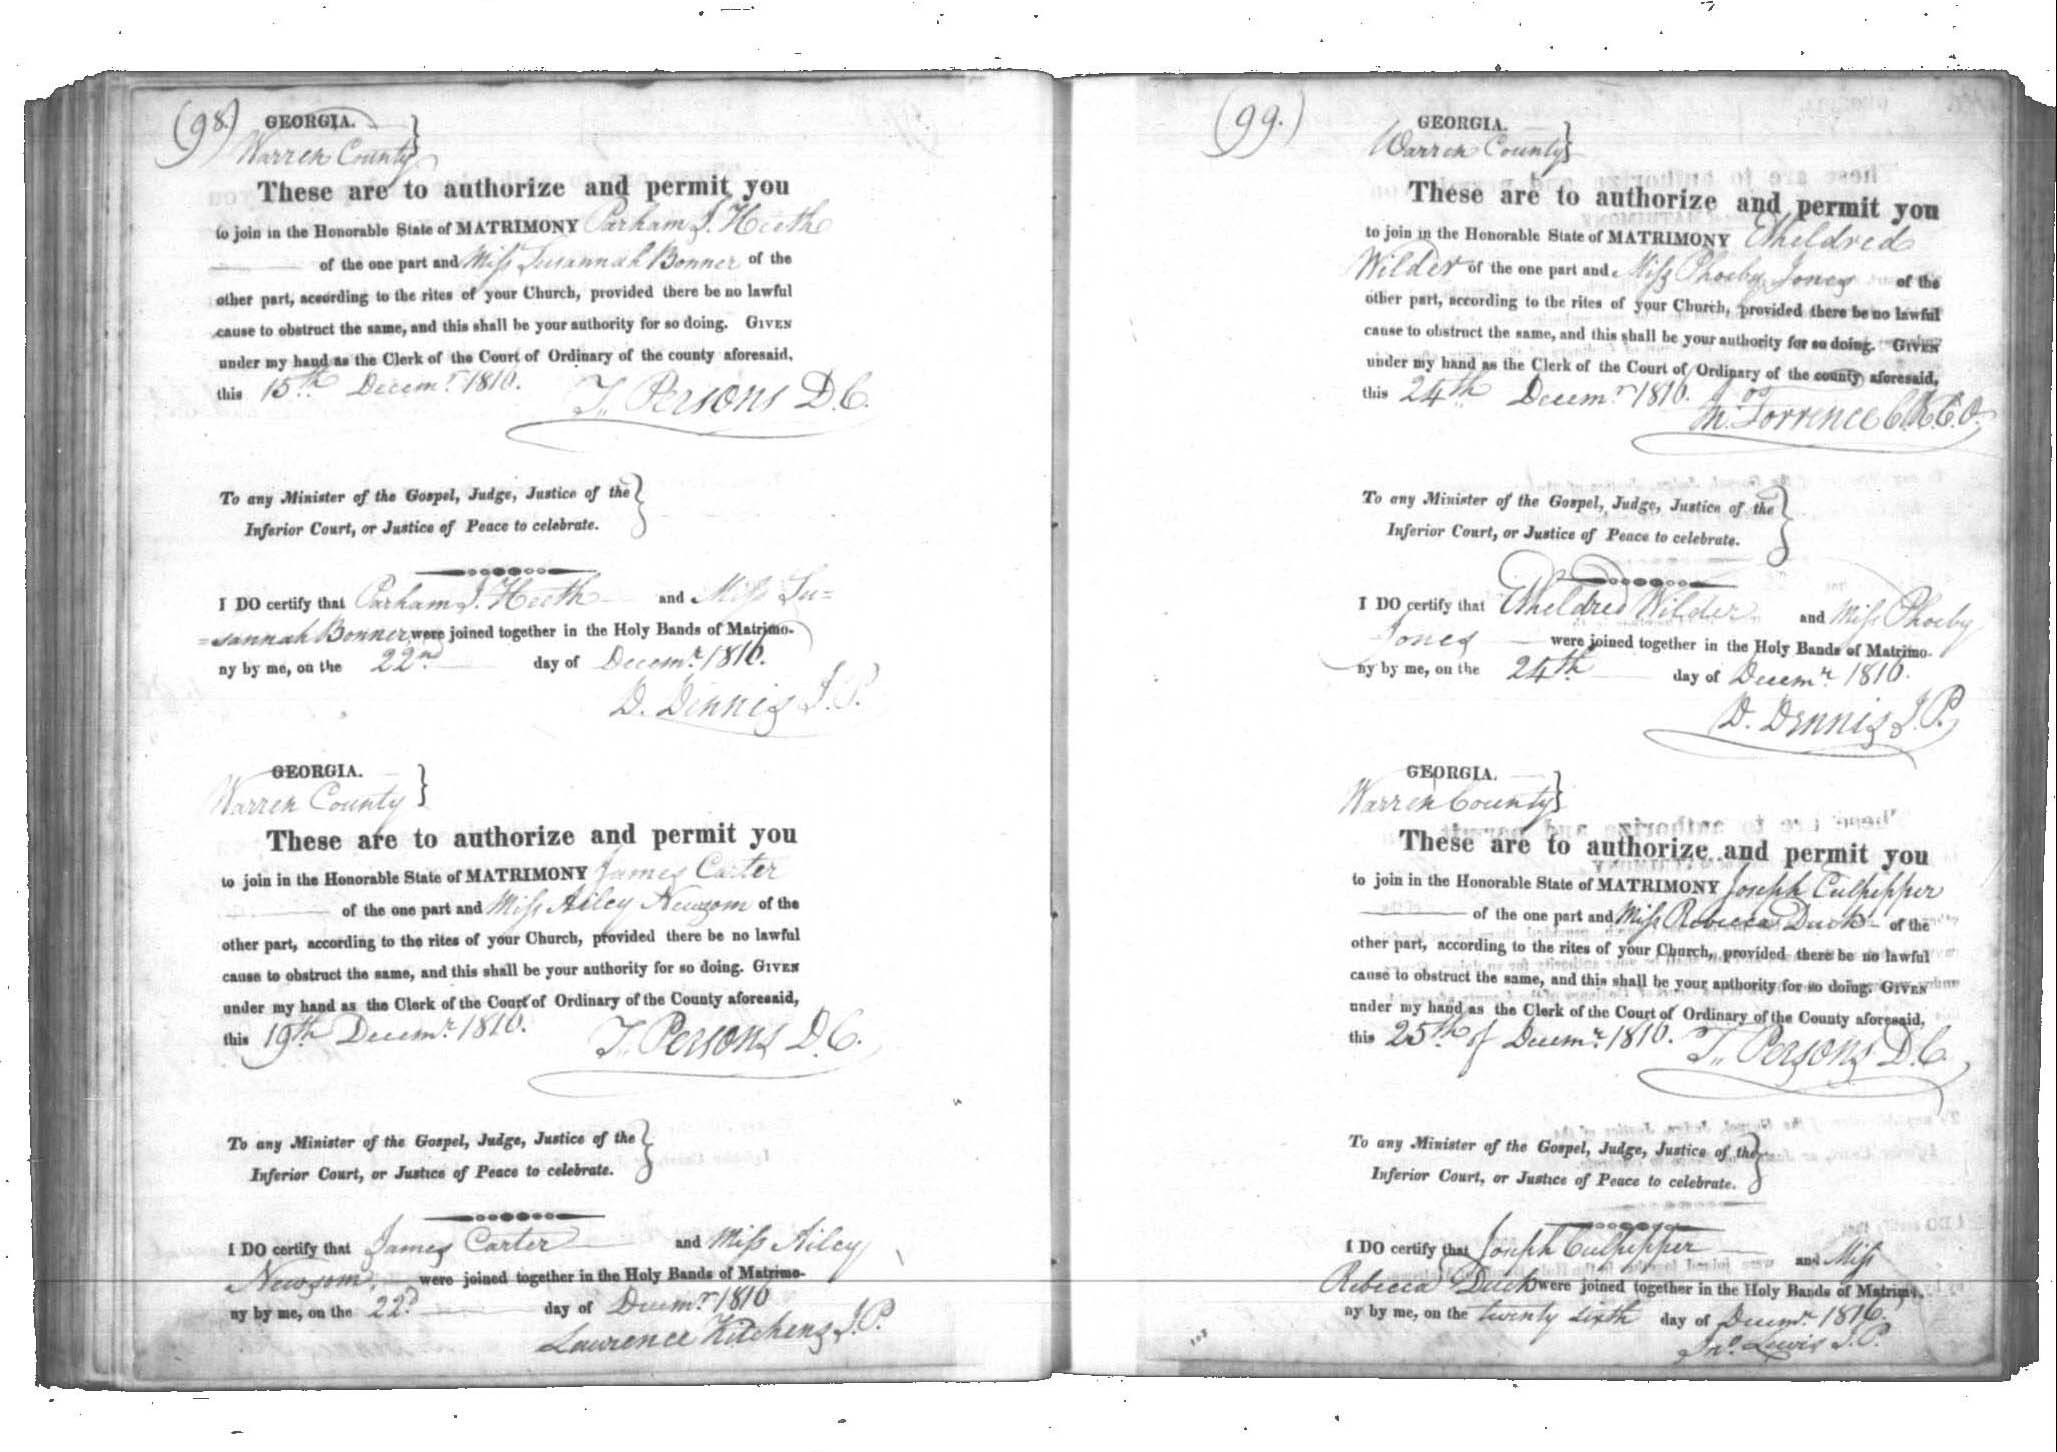 (98.)
GEORGIA.
Warren County }
These are to authorize and permit you
to join in the Honorable State of MATRIMONY Parham J. Heeth
of the one part and Miss Susannah Bonner of the
other part, according to the rites of your Church, provided there be no lawful
cause to obstruct the same, and this shall be your authority for so doing. GIVEN
under my hand as the Clerk of the Court of Ordinary of the county aforesaid,
this 15th Decemr. 1816.
T. Persons D.C.
To any Minister of the Gospel, Judge, Justice of the }
Inferior Court, or Justice of Peace to celebrate.
I DO certify that Parham J. Heeth and Miss Su=
=sannah Bonner were joined together in the Holy Bands of Matrimo-
ny by me, on the 22nd day of Decemr. 1816.
D. Dennis J.P.
GEORGIA.
Warren County }
These are to authorize and permit you
to join in the Honorable State of MATRIMONY James Carter
of the one part and Miss Ailey Newsom of the
other part, according to the rites of your Church, provided there be no lawful
cause to obstruct the same, and this shall be your authority for so doing. GIVEN
under my hand as the Clerk of the Court of Ordinary of the County aforesaid,
this 19th Decemr. 1816.
T. Persons D.C.
To any Minister of the Gospel, Judge, Justice of the }
Inferior Court, or Justice of Peace to celebrate.
I DO certify that James Carter and Miss Ailey
Newsom, were joined together in the Holy Bands of Matrimo-
ny by me, on the 22d day of Decemr. 1816
Laurence Kitchens J.P.
(99.)
GEORGIA.
Warren County }
These are to authorize and permit you
to join in the Honorable State of MATRIMONY Etheldred
Wilder of the one part and Miss Phoeby Jones of the
other part, according to the rites of your Church, provided there be no lawful
cause to obstruct the same, and this shall be your authority for so doing. GIVEN
under my hand as the Clerk of the Court of Ordinary of the county aforesaid,
this 24th Decemr. 1816.
M. Torrence C.C.O.
To any Minister of the Gospel, Judge, Justice of the }
Inferior Court, or Justice of Peace to celebrate.
I DO certify that Etheldred Wilder and Miss Phoeby
Jones were joined together in the Holy Bands of Matrimo-
ny by me, on the 24th day of Decemr. 1816.
D. Dennis J.P.
GEORGIA.
Warren County }
These are to authorize and permit you
to join in the Honorable State of MATRIMONY Joseph Culpepper
of the one part and Miss Rebecca Duck of the
other part, according to the rites of your Church, provided there be no lawful
cause to obstruct the same, and this shall be your authority for so doing. GIVEN
under my hand as the Clerk of the Court of Ordinary of the County aforesaid,
this 25th of Decemr. 1816.
T. Persons D.C.
To any Minister of the Gospel, Judge, Justice of the }
Inferior Court, or Justice of Peace to celebrate.
I DO certify that Joseph Culpepper and Miss
Rebecca Duck were joined together in the Holy Bands of Matrimo-
ny by me, on the twenty sixth day of Decemr. 1816.
Jno. Lewis J.P.